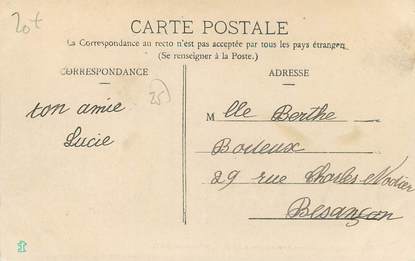 20+
CARTE POSTALE
La Correspondance au recto n'est pas acceptée par tous les pays étrangers
(Se renseigner à la Poste.)
CORRESPONDANCE
ton amie
Lucie
25
ADRESSE
Mlle Berthe
Boileux
29 rue Charles Nodier
Besançon